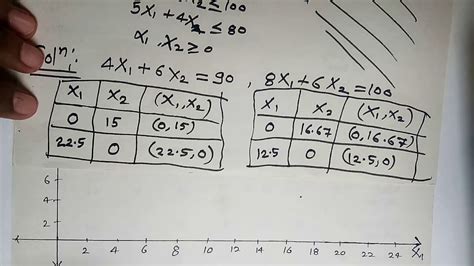 ≤100
5X₁+4X₂ ≤ 80
X₁, X₂ ≥ 0
Solⁿ:
4X₁+6X₂=90, 8X₁+6X₂=100
X₁ X₂ (X₁,X₂)
0 15 (0,15)
22.5 0 (22.5,0)
X₁ X₂ (X₁,X₂)
0 16.67 (0,16.67)
12.5 0 (12.5,0)
6
4
2
2 4 6 8 10 12 14 16 18 20 22 24 X₁